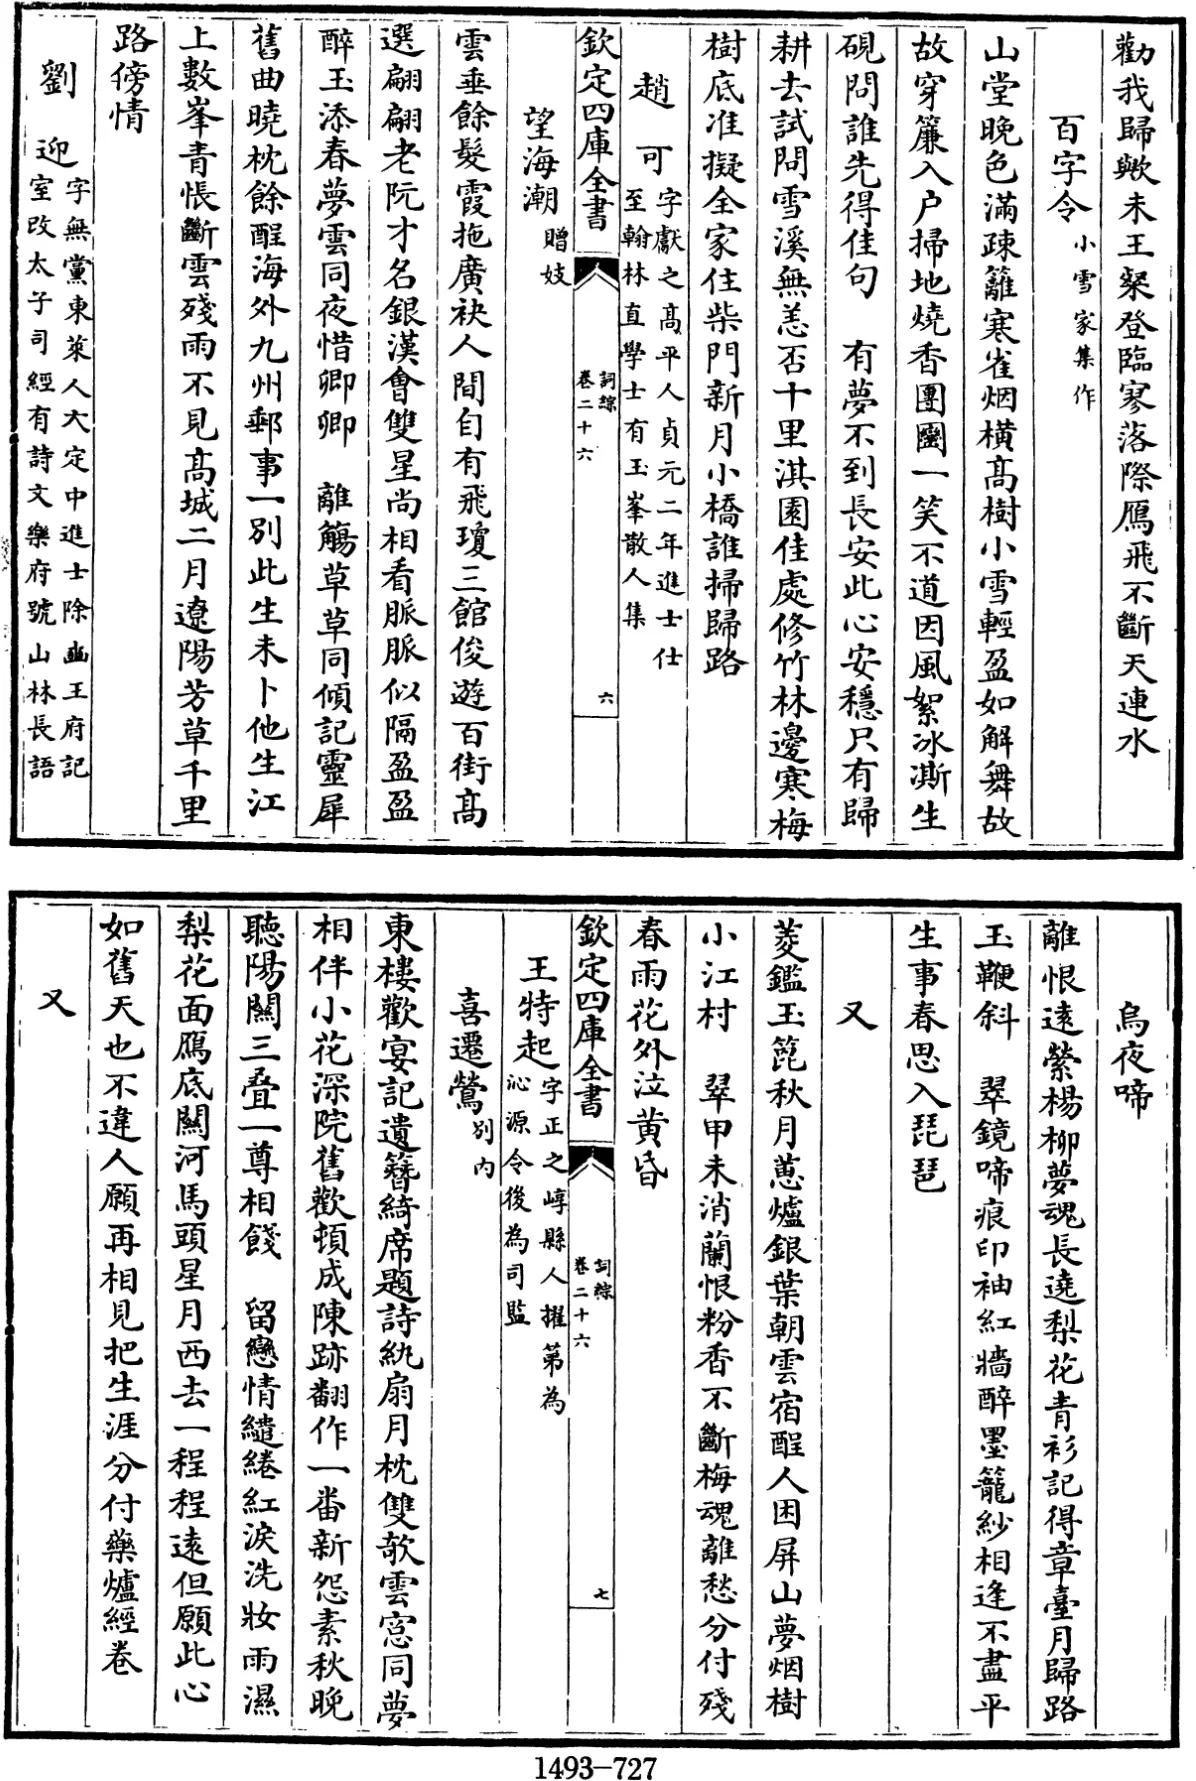 勸我歸歟未王粲登臨寥落際鴈飛不斷天連水
百字令小雪家集作
山堂晚色滿疎籬寒雀烟橫髙樹小雪輕盈如解舞故
故穿簾入户掃地燒香團圞一笑不道因風絮冰澌生
硯問誰先得佳句　有夢不到長安此心安穩只有歸
耕去試問雪溪無恙否十里淇園佳處修竹林邊寒梅
樹底准擬全家住柴門新月小橋誰掃歸路
趙可字獻之髙平人貞元二年進士仕
至翰林直學士有玉峯散人集
欽定四庫全書
詞綜
卷二十六
六
望海潮贈妓
雲垂餘髮霞拖廣袂人間自有飛瓊三館俊遊百街髙
選翩翩老阮才名銀漢會雙星尚相看脈脈似隔盈盈
醉玉添春夢雲同夜惜卿卿　離觴草草同傾記靈犀
舊曲曉枕餘酲海外九州郵事一别此生未卜他生江
上數峯青悵斷雲殘雨不見髙城二月遼陽芳草千里
路傍情
劉迎字無黨東萊人大定中進士除豳王府記
室改太子司經有詩文樂府號山林長語
烏夜啼
離恨逺縈楊柳夢魂長遶梨花青衫記得章臺月歸路
玉鞭斜　翠鏡啼痕印袖紅牆醉墨籠紗相逢不盡平
生事春思入琵琶
又
菱鑑玉篦秋月蕙爐銀葉朝雲宿酲人困屏山夢烟樹
小江村　翠甲未消蘭恨粉香不斷梅魂離愁分付殘
春雨花外泣黄昏
欽定四庫全書
詞綜
卷二十六
七
王特起字正之崞縣人擢第為
沁源令後為司監
喜遷鶯别内
東樓歡宴記遺簪綺席題詩紈扇月枕雙欹雲窻同夢
相伴小花深院舊歡頓成陳跡翻作一番新怨素秋晚
聽陽關三疊一尊相餞　留戀情繾綣紅淚洗妝雨濕
梨花面鴈底關河馬頭星月西去一程程逺但願此心
如舊天也不違人願再相見把生涯分付藥爐經卷
又
1493—727